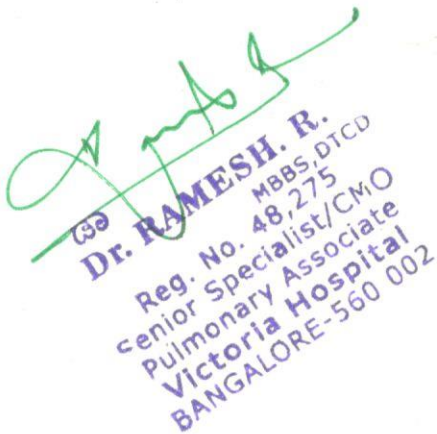 Dr. RAMESH. R.
MBBS, DTCD
Reg. No. 48,275
Senior Specialist/CMO
Pulmonary Associate
Victoria Hospital
BANGALORE-560 002